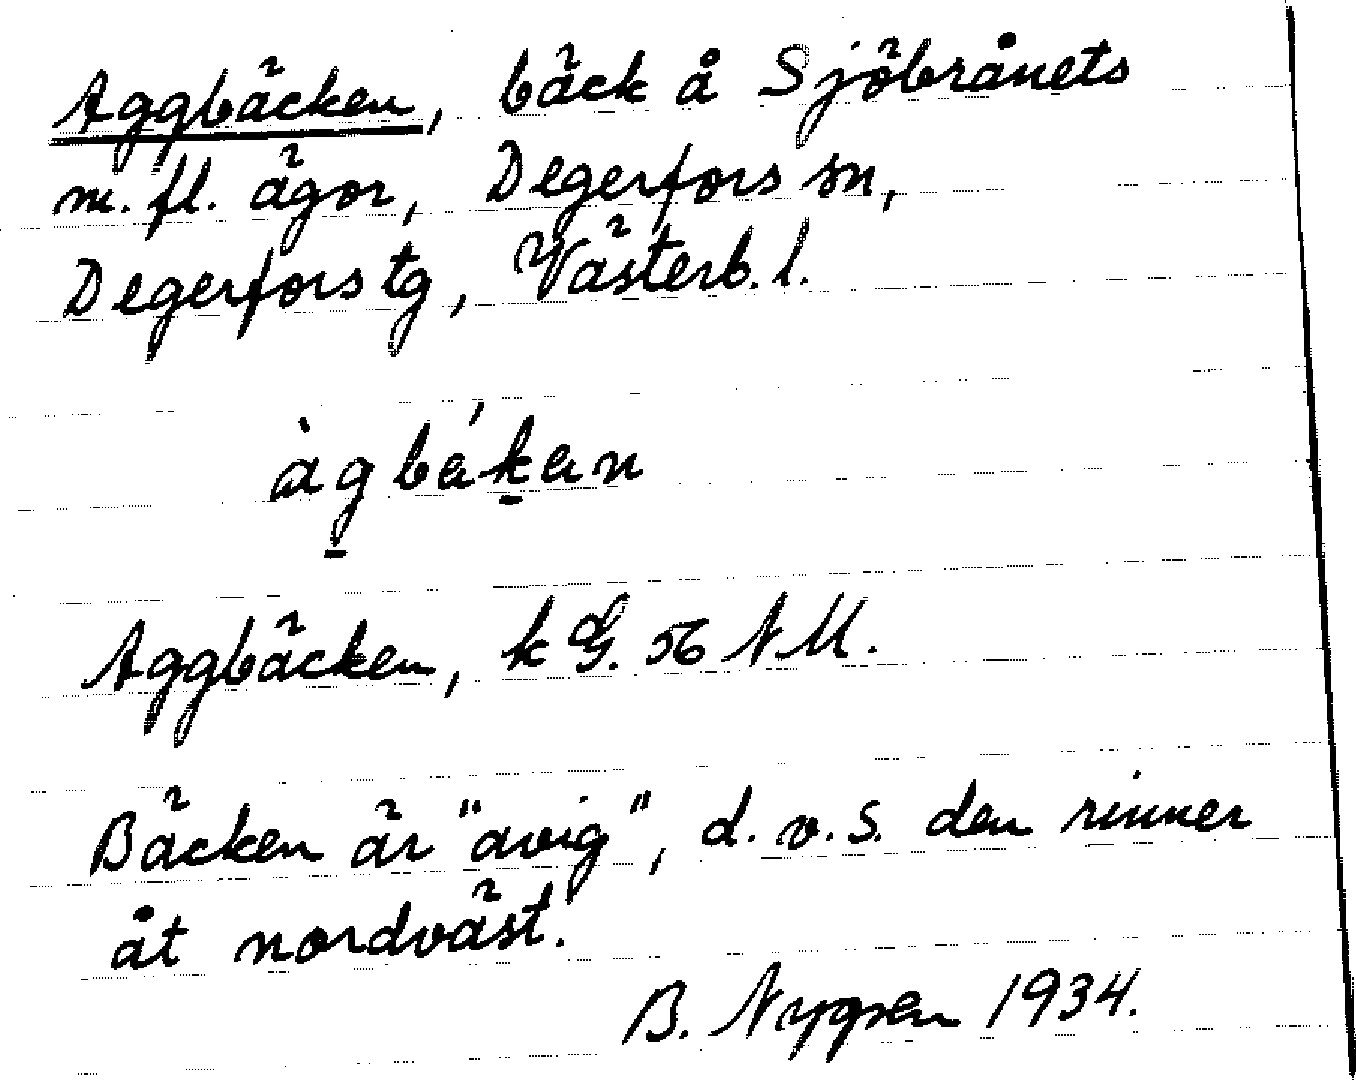 Aggbäcken, bäck å Sjöbrånets
m. fl. ägor, Degerfors sn,
Degerfors tg, Västerb. l.
àgbákan
Aggbäcken, k G. 56 NM.
Bäcken är "avig", d. v. s. den rinner
åt nordväst.
B. 1934.